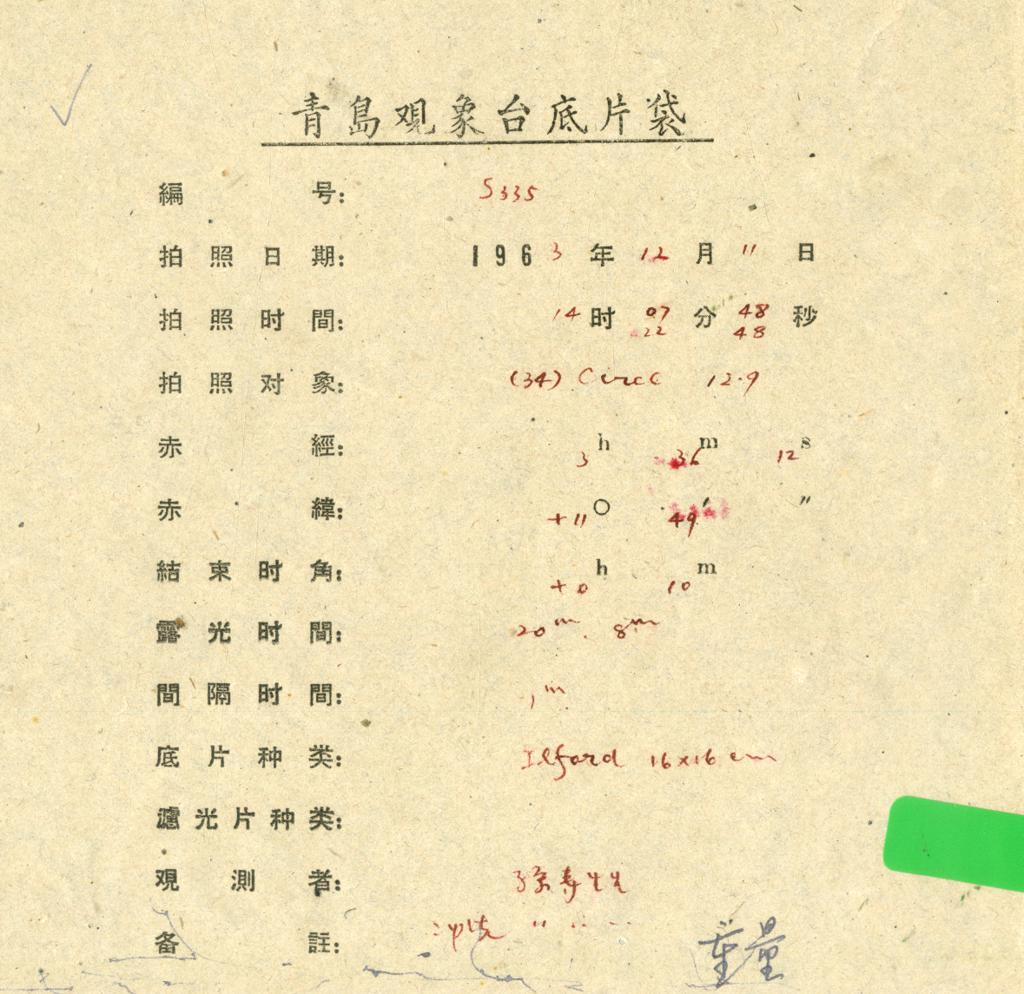 青島观象台底片袋
編号: S335
拍照日期: 1963年12月11日
拍照时間: 14时07分48秒
22 48
拍照对象: (34) Circe 12.9
赤經: 3h 36m 12s
赤緯: +11° 49′ ″
結束时角: +0h 10m
露光时間: 20m. 8m
間隔时間: 1m
底片种类: Ilford 16x16 cm
濾光片种类:
观測者: 孫寿
备註: 冲洗 〃 重量